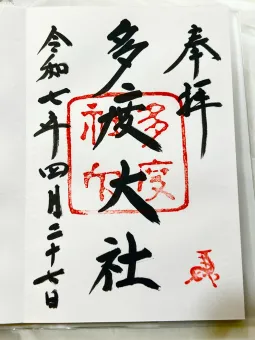 奉拝
多度大社
令和七年四月二十七日
多度